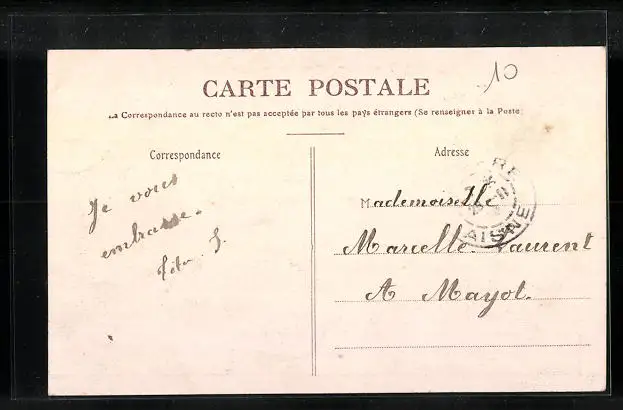 CARTE POSTALE
10
La Correspondance au recto n'est pas acceptée par tous les pays étrangers (Se renseigner à la Poste)
Correspondance
Adresse
Je vous
embrasse.
Mademoiselle
Marcelle Laurent
A Mayot.
AISNE